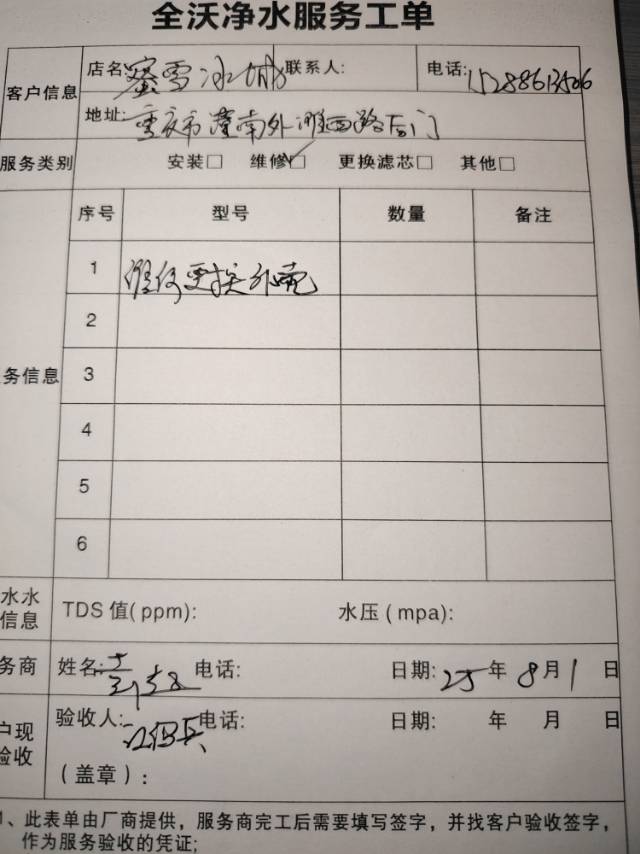 全沃净水服务工单
客户信息
店名: 蜜雪冰城 联系人: 电话: 15288613506
地址: 重庆市潼南外滩西路后门
服务类别 安装□ 维修☑ 更换滤芯□ 其他□
序号 型号 数量 备注
务信息
1 维修更换外壳
2
3
4
5
6
水水
信息
TDS 值(ppm): 水压(mpa):
务商 姓名: 电话: 日期: 25 年 8 月 1 日
户现
验收
验收人: 电话: 日期: 年 月 日
(盖章):
1、此表单由厂商提供，服务商完工后需要填写签字，并找客户验收签字，
作为服务验收的凭证;